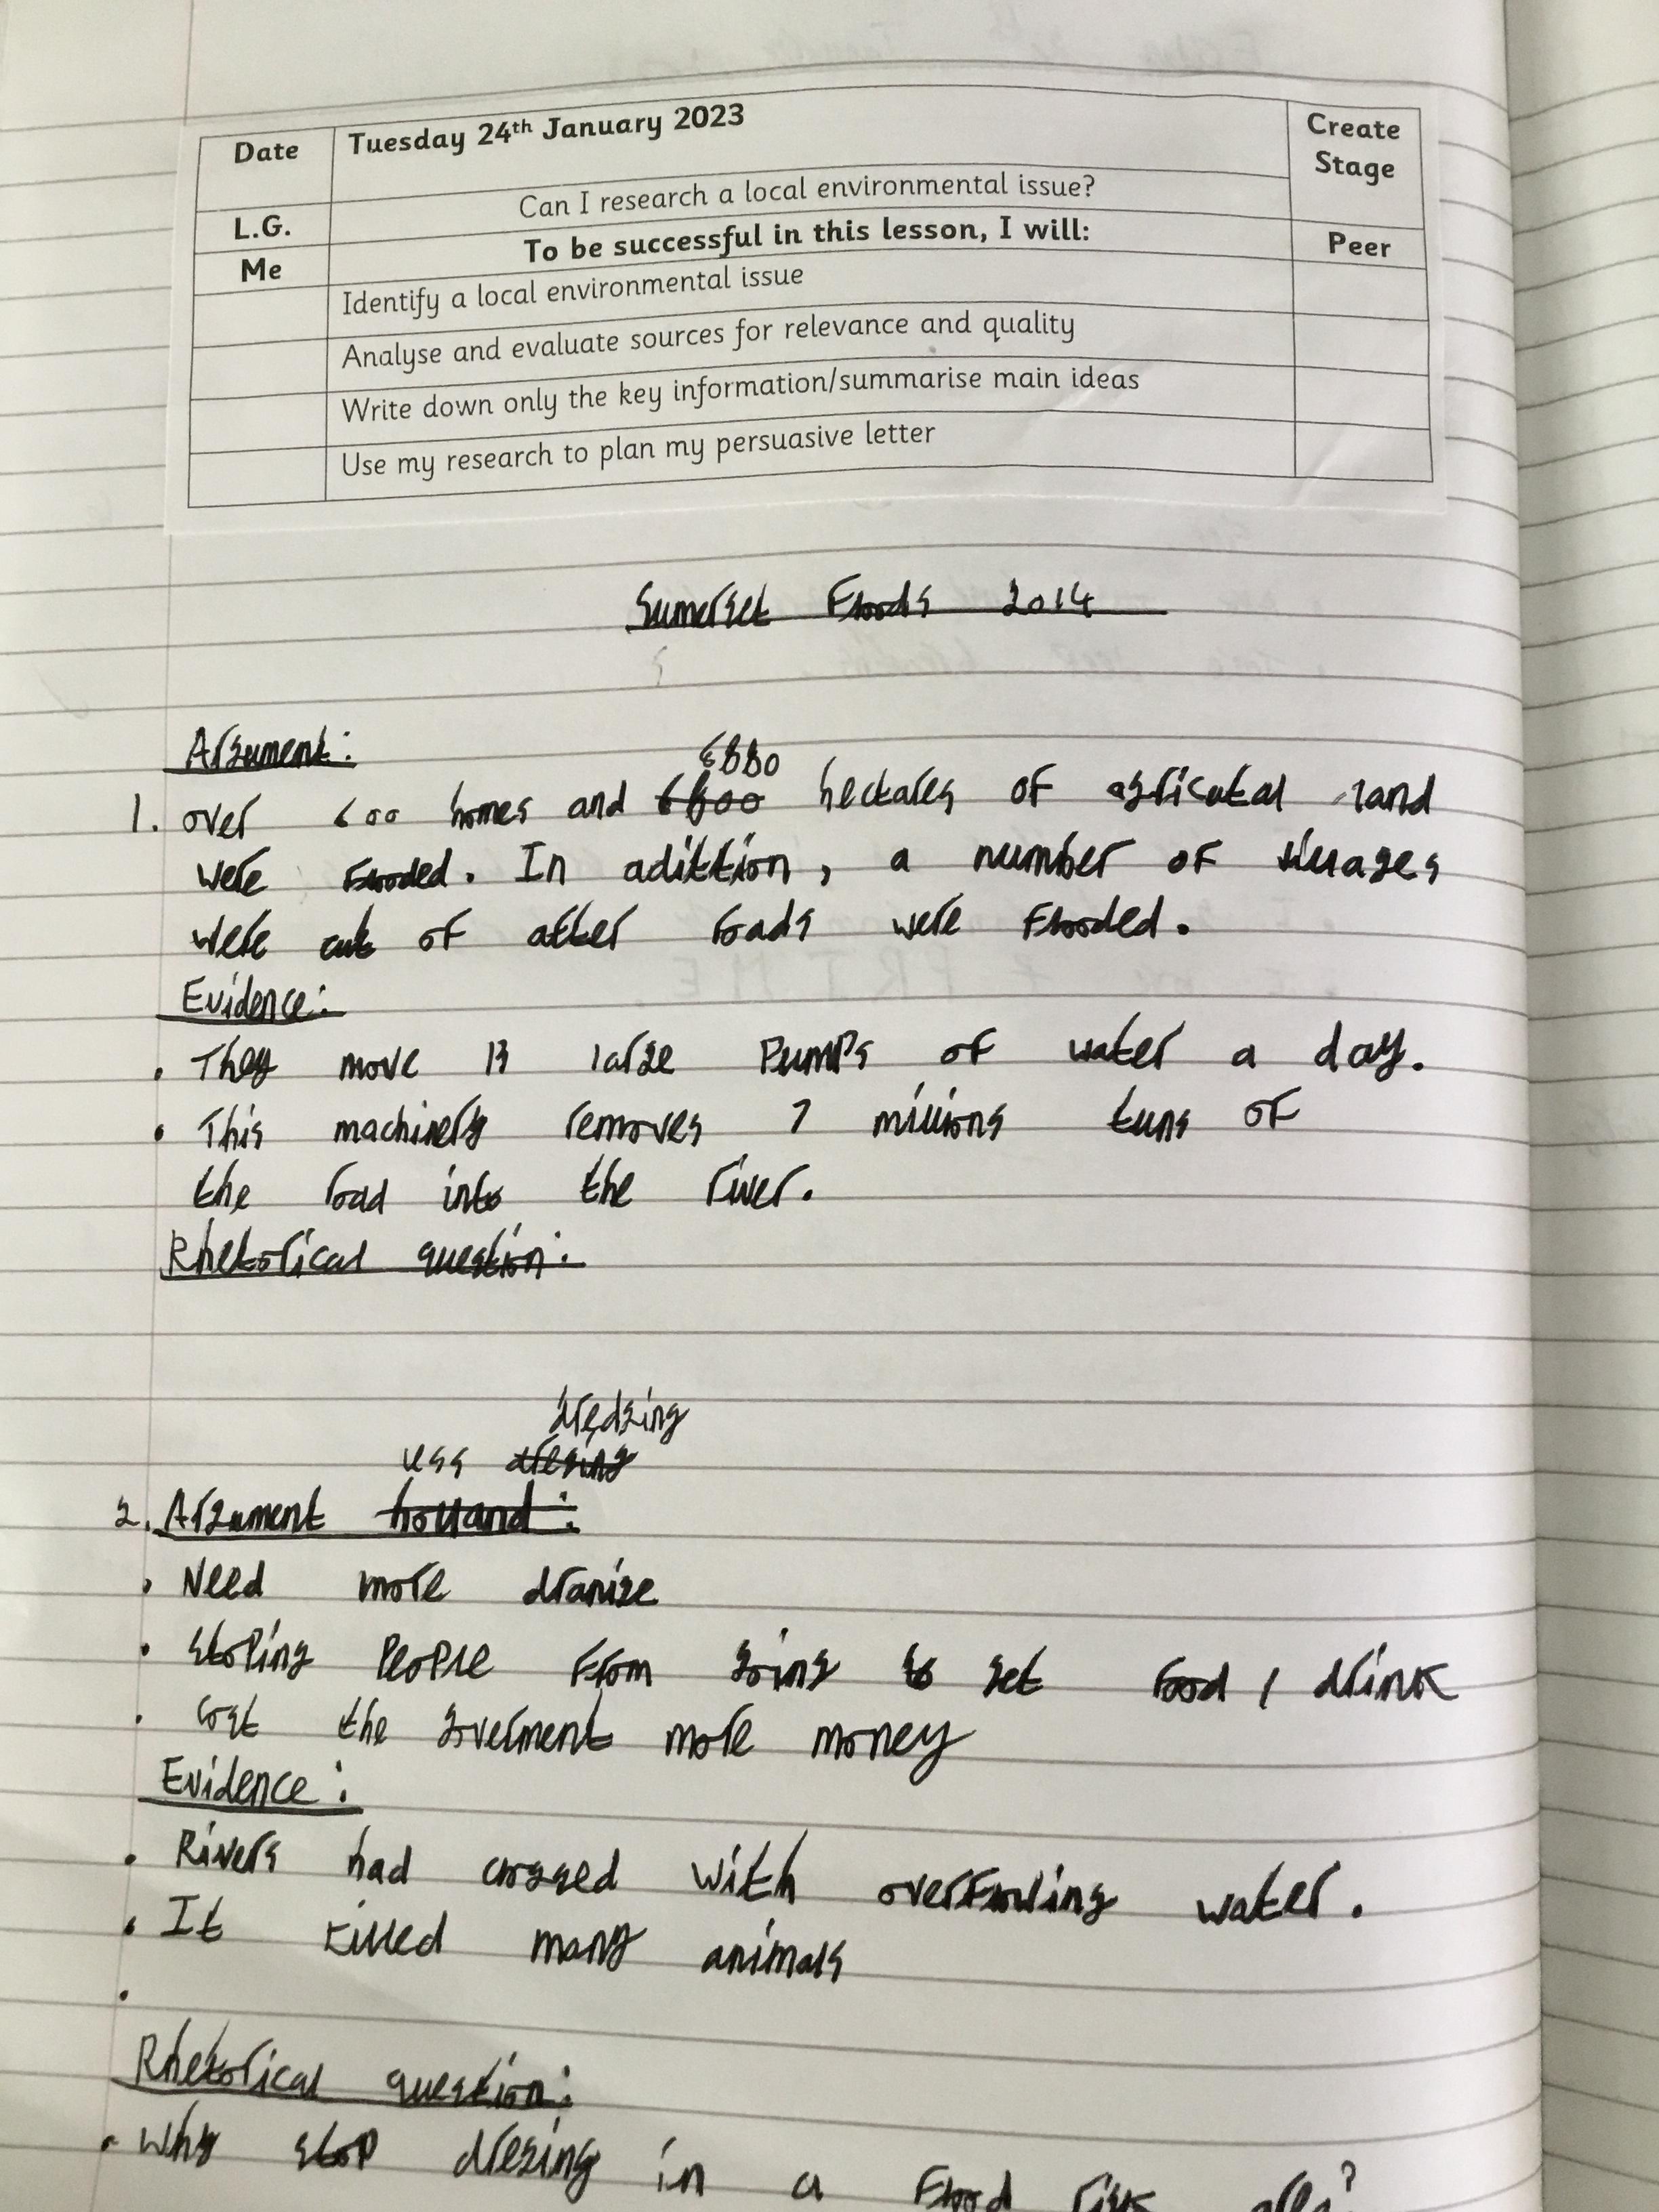 Date
Tuesday 24th January 2023
Create Stage
L.G.
Can I research a local environmental issue?
Me
To be successful in this lesson, I will:
Peer
Identify a local environmental issue
Analyse and evaluate sources for relevance and quality
Write down only the key information/summarise main ideas
Use my research to plan my persuasive letter
Somerset Floods 2014
Argument:
6880
1. over 600 homes and hectares of agricutal land
were flooded. In adittion, a number of
were cut of after roads were flooded.
Evidence:
• They move 13 large Pumps of water a day.
• This machinery removes 7 millions tuns of
the road into the river.
Rhetorical question:
dredging
less dresing
2. Argument holland:
• Need more dranige
• stoping people from going to get food / drink
• cost the goverment more money
Evidence:
• Rivers had clogged with overflowing water.
• It killed many animals
•
Rhetorical question:
• Why stop dresing in a flood risk area?